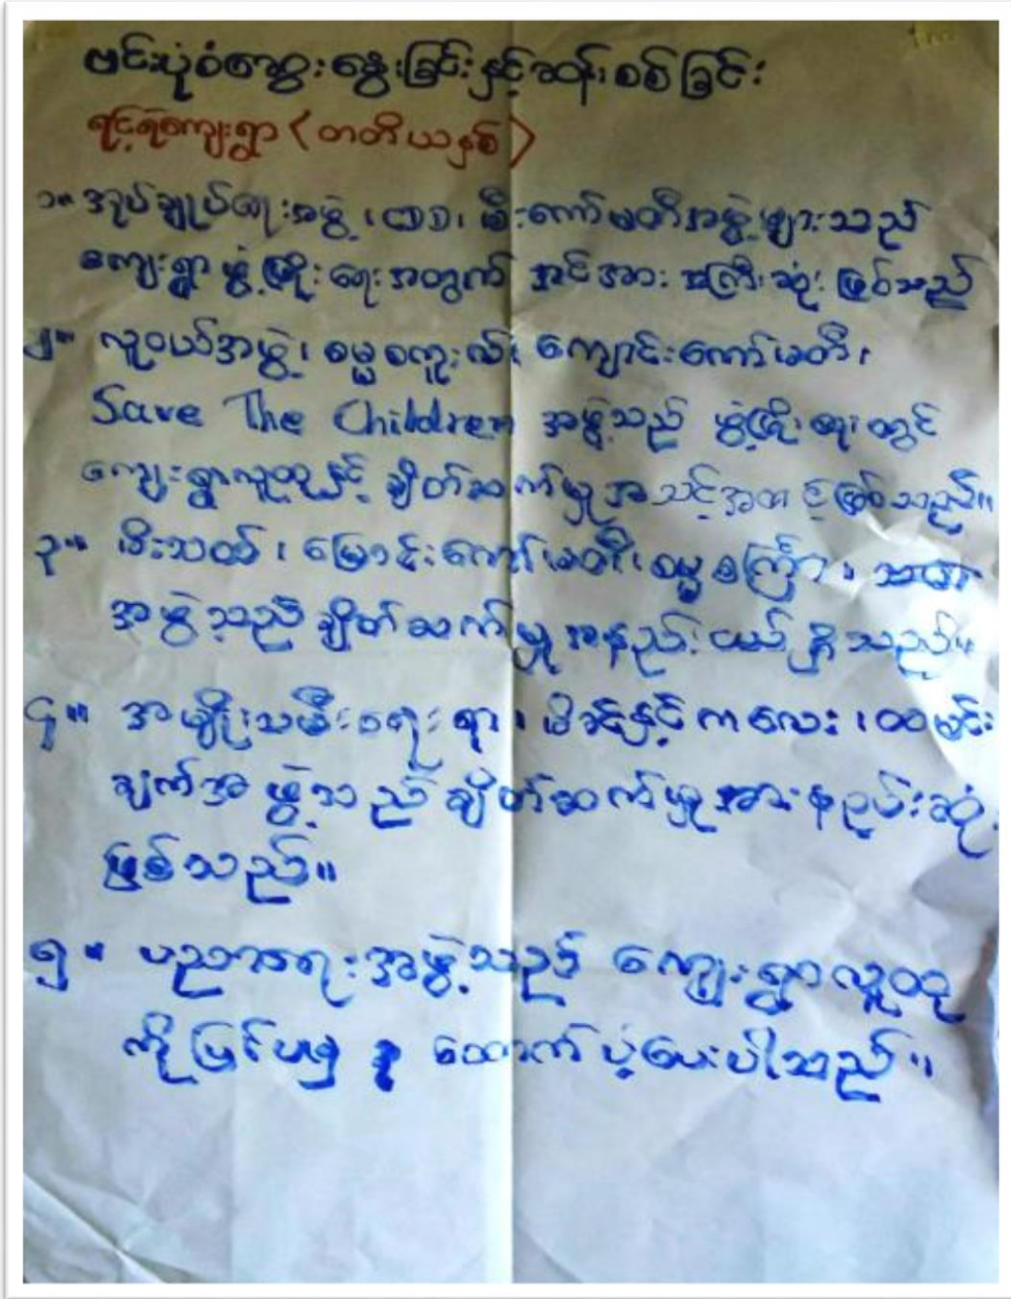 ဗင်းပုံစံဆွေးနွေးခြင်းနှင့်ဆန်းစစ်ခြင်း
ရင့်ရဲကျေးရွာ (တတိယနှစ်)
၁။ အုပ်ချုပ်ရေးအဖွဲ့၊ CDD၊ မီးကော်မတီအဖွဲ့များသည်
ကျေးရွာဖွံ့ဖြိုးရေးအတွက် အင်အား အကြီးဆုံး ဖြစ်သည်
၂။ လူငယ်အဖွဲ့၊ ဓမ္မစကူးလ်၊ ကျောင်းကော်မတီ၊
Save The Children အဖွဲ့သည် ဖွံ့ဖြိုးရေးတွင်
ကျေးရွာလူထုနှင့် ချိတ်ဆက်မှု အသင့်အတင့်ဖြစ်သည်။
၃။ မီးသတ်၊ မြောင်းကော်မတီ၊ ဓမ္မစကြာ၊
အဖွဲ့သည် ချိတ်ဆက်မှု အနည်းငယ်ရှိသည်။
၄။ အမျိုးသမီးရေးရာ၊ မိခင်နှင့်ကလေး၊ ထမင်း
ချက်အဖွဲ့သည် ချိတ်ဆက်မှုအားနည်းဆုံး
ဖြစ်သည်။
၅။ ပညာရေးအဖွဲ့သည် ကျေးရွာလူထု
ကိုပြင်ပမှ ထောက်ပံ့ပေးပါသည်။